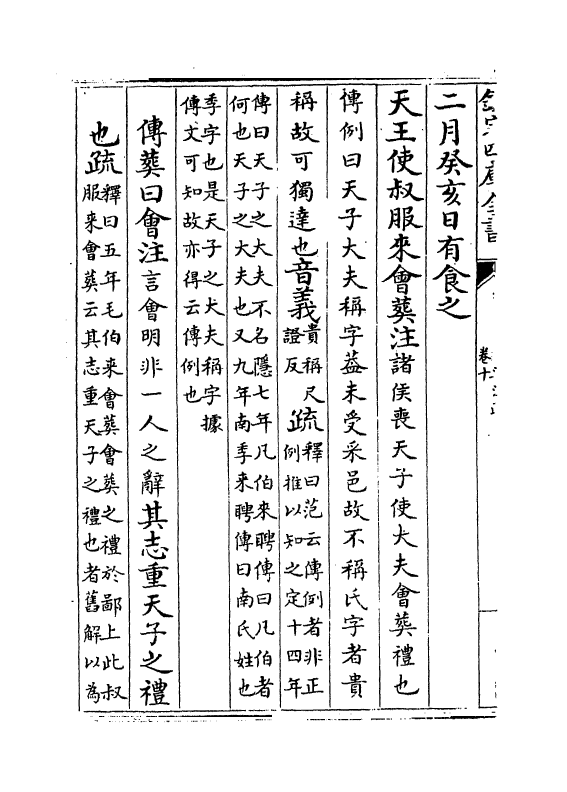 欽定四庫全書
卷十
二月癸亥日有食之
天王使叔服來會葬注諸侯喪天子使大夫會葬禮也
傳例曰天子大夫稱字葢未受采邑故不稱氏字者貴
稱故可獨達也音義貴稱尺證反疏釋曰范云傳例者非正例推以知之定十四年
傳曰天子之大夫不名隱七年凡伯來聘傳曰凡伯者何也天子之大夫也又九年南季来聘傳曰南氏姓也
季字也是天子之大夫稱字據傳文可知故亦得云傳例也
傳葬曰會注言會明非一人之辭其志重天子之禮
也疏釋曰五年毛伯来會葬會葬之禮於鄙上此叔服来會葬云其志重天子之禮也者舊解以為